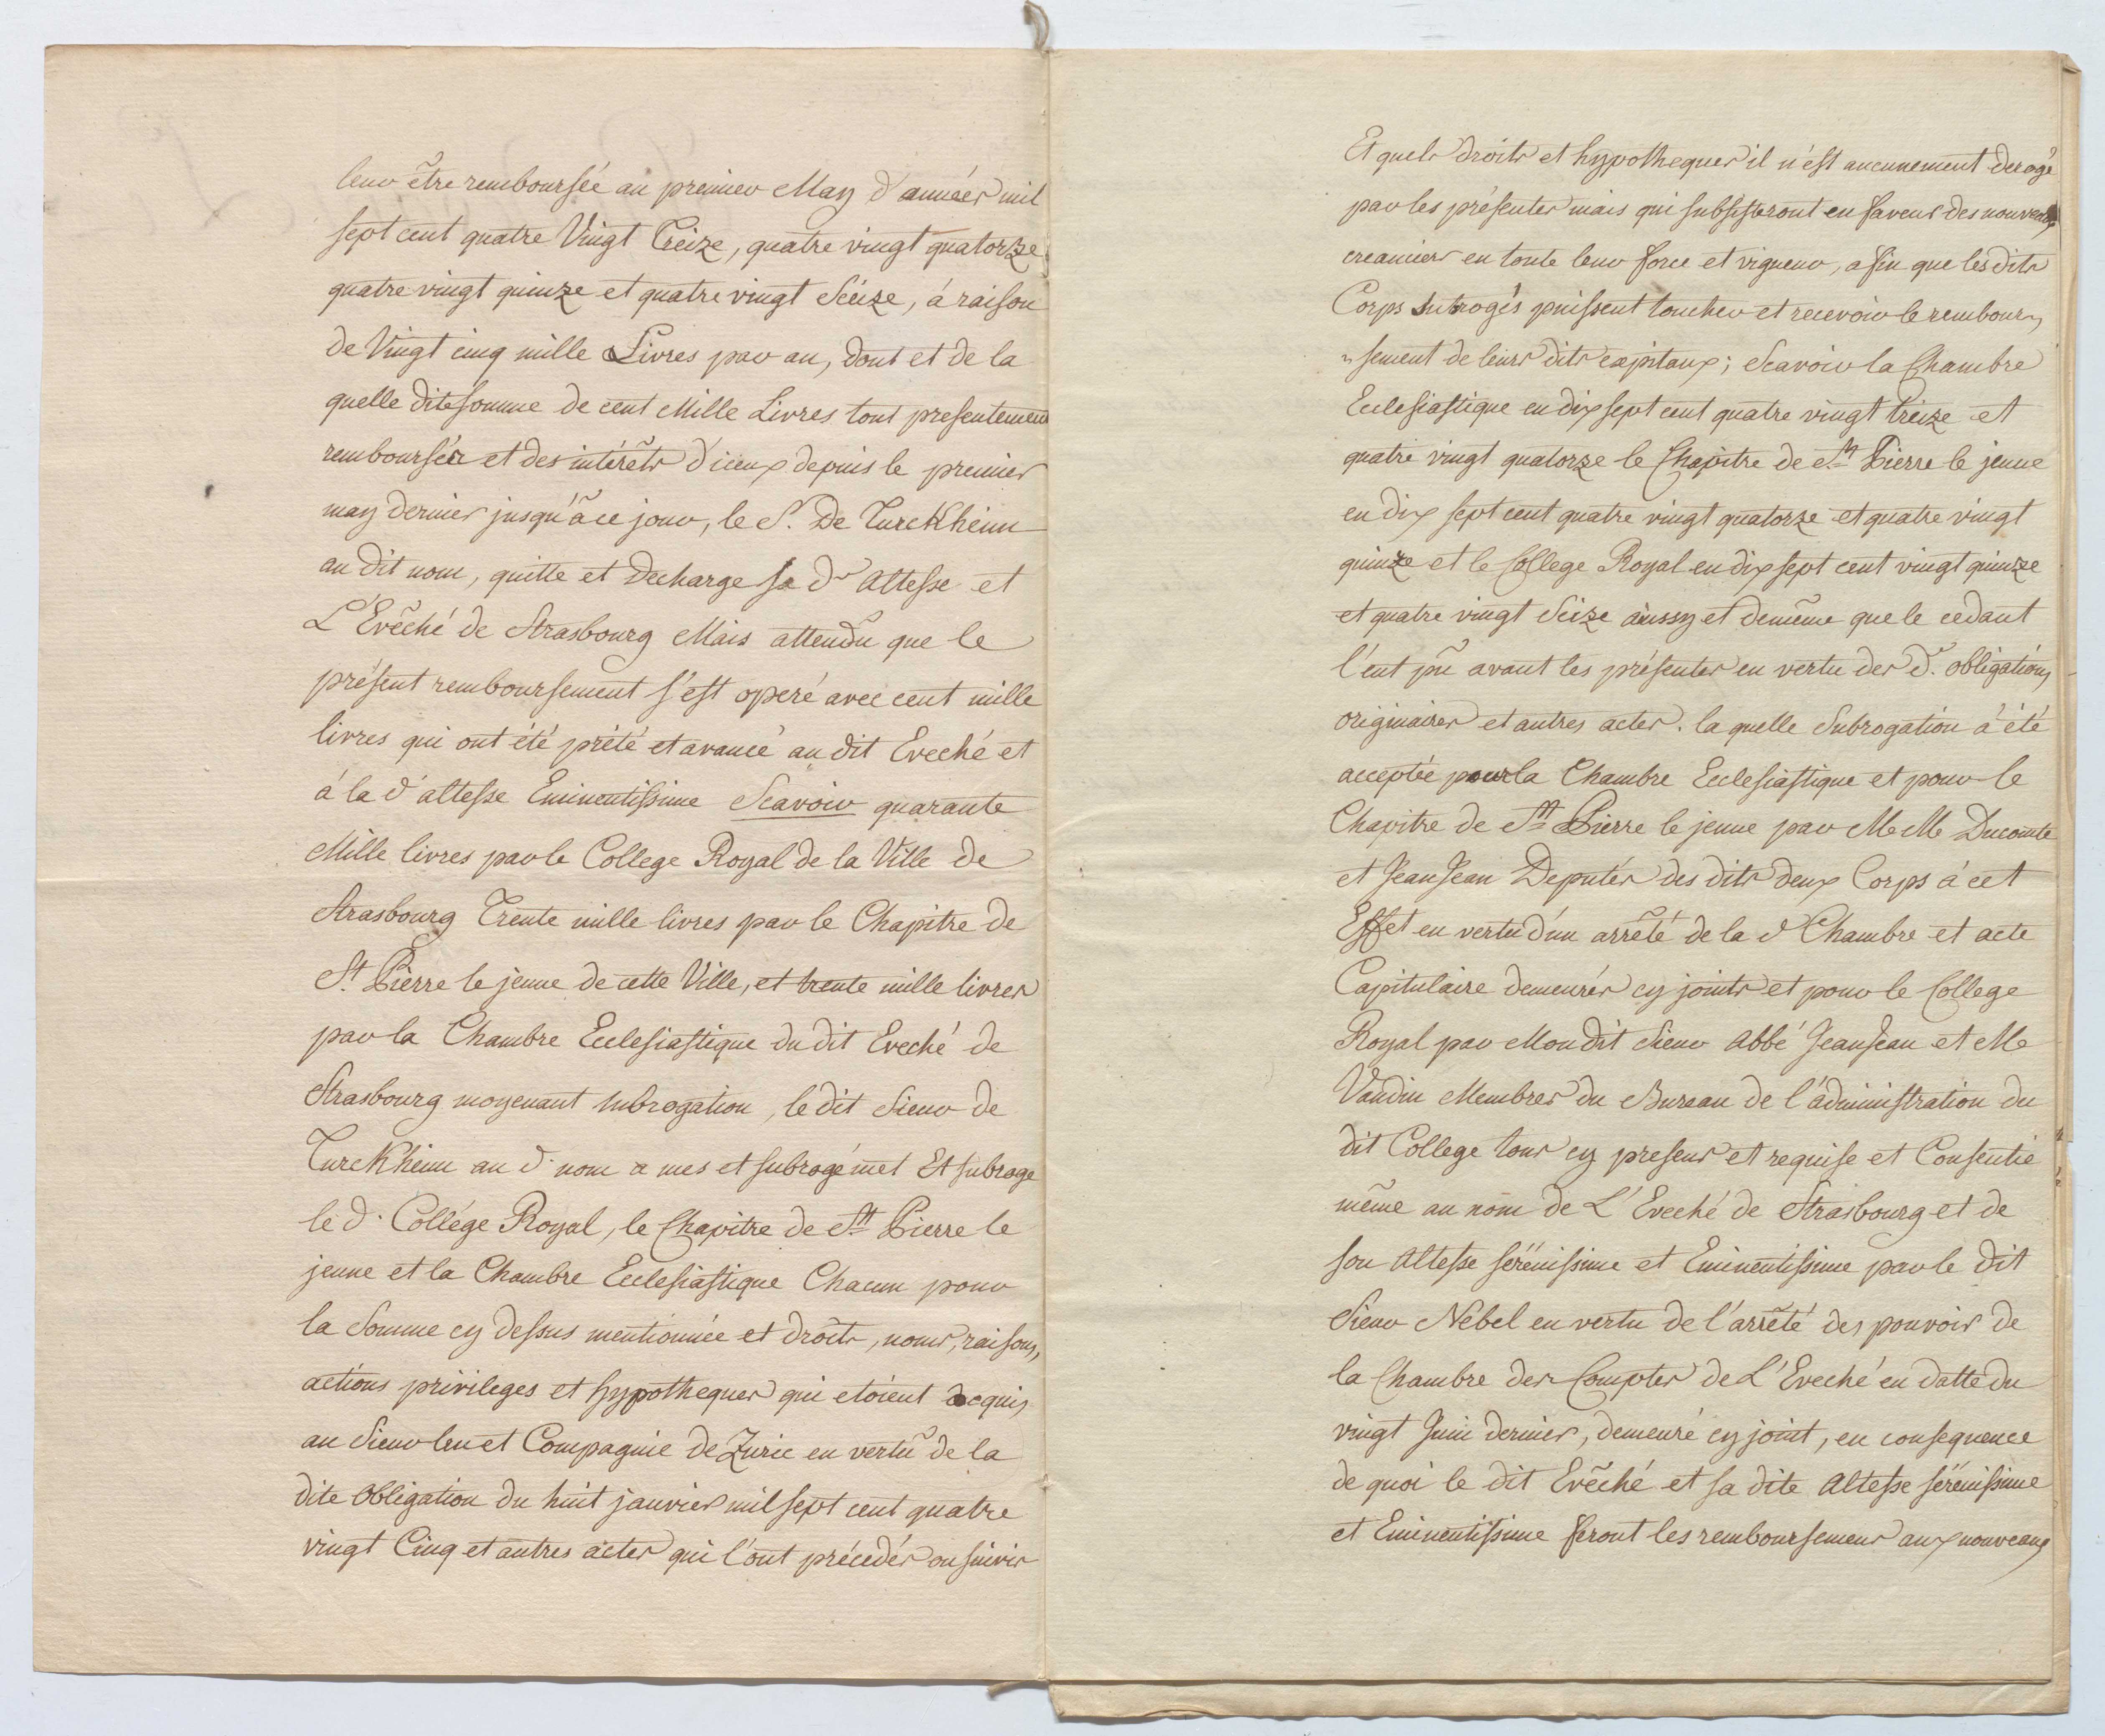 leur être remboursée au premier May d'années mil
sept cent quatre Vingt Treize, quatre vingt quatorze
quatre vingt quinze et quatre vingt Seize, á raison
de Vingt cinq mille Livres par an, dont et de la
quelle dite somme de cent Mille Livres tout presentement
remboursée et des intérêts d'iceux depuis le premier
may dernier jusqu'à ce jour, le S. De Turckheim
au dit nom, quitte et decharge sa de Altesse et
L'Evêché de Strasbourg Mais attendu que le
présent remboursement s'est operé avec cent mille
livres qui ont été prété et avancé au dit Eveché et
á la d altesse Eminentissime Scavoir quarante
Mille livres par le College Royal de la Ville de
Strasbourg Trente mille livres par le Chapitre de
St. Pierre le jeune de cette Ville, et trente mille livres
par la Chambre Ecclesiastique du dit Eveché de
Strasbourg moyenant subrogation, le dit Sieur de
Turckheim au d. nom a mes et subrogé met Et subroge
le d. Collége Royal, le Chapitre de St Pierre le
jeune et la Chambre Ecclesiastique Chacun pour
la Somme cy dessus mentionnée et droits, noms, raisons,
actions privileges et hypotheques qui etoient acquis
au Sieur leu et Compagnie de Zuric en vertu de la
dite Obligation du huit janvier mil sept cent quatre
vingt Cinq et autres actes qui l'ont précédés ou suivis
Et quels droits et hypotheques il n'est aucunement derogé
par les présentes mais qui subsisteront en faveur des nouveaux
creanciers en toute leur force et vigueur, afin que les dits
Corps subrogés puissent toucher et recevoir le rembour,,
,,sement de leurs dits capitaux; Scavoir la Chambre
Ecclesiastique en dix sept cent quatre vingt treize et
quatre vingt quatorze le Chapitre de St Pierre le jeune
en dix sept cent quatre vingt quatorze et quatre vingt
quinze et le College Royal en dix sept cent vingt quinze
et quatre vingt Seize aussy et demême que le cedant
l'eut pu avant les présentes en vertu des d. obligations
originaires et autres actes. la quelle Subrogation à été
acceptée pour la Chambre Ecclesiastique et pour le
Chapitre de St Pierre le jeune par MeMe Ducomte
et JeanJean Deputés des dits deux Corps á cet
Effet en vertu d'un arrêté de la d Chambre et acte
Capitulaire demeurés cy joints et pour le College
Royal par Mondit Sieur Abbé JeanJean et Me
Vaudin Membres du Bureau de l'administration du
dit College tous cy presens et requise et Consentie
même au nom de L'Eveché de Strasbourg et de
son Altesse sérénissime et Eminentissime par le dit
Sieur Nebel en vertu de l'arrêté des pouvoir de
la Chambre des Comptes de L'Eveché en datte du
vingt Juin dernier, demeuré cy joint, en consequence
de quoi le dit Evêché et sa dite Altesse sérénissime
et Eminentissime feront les remboursemens aux nouveaux